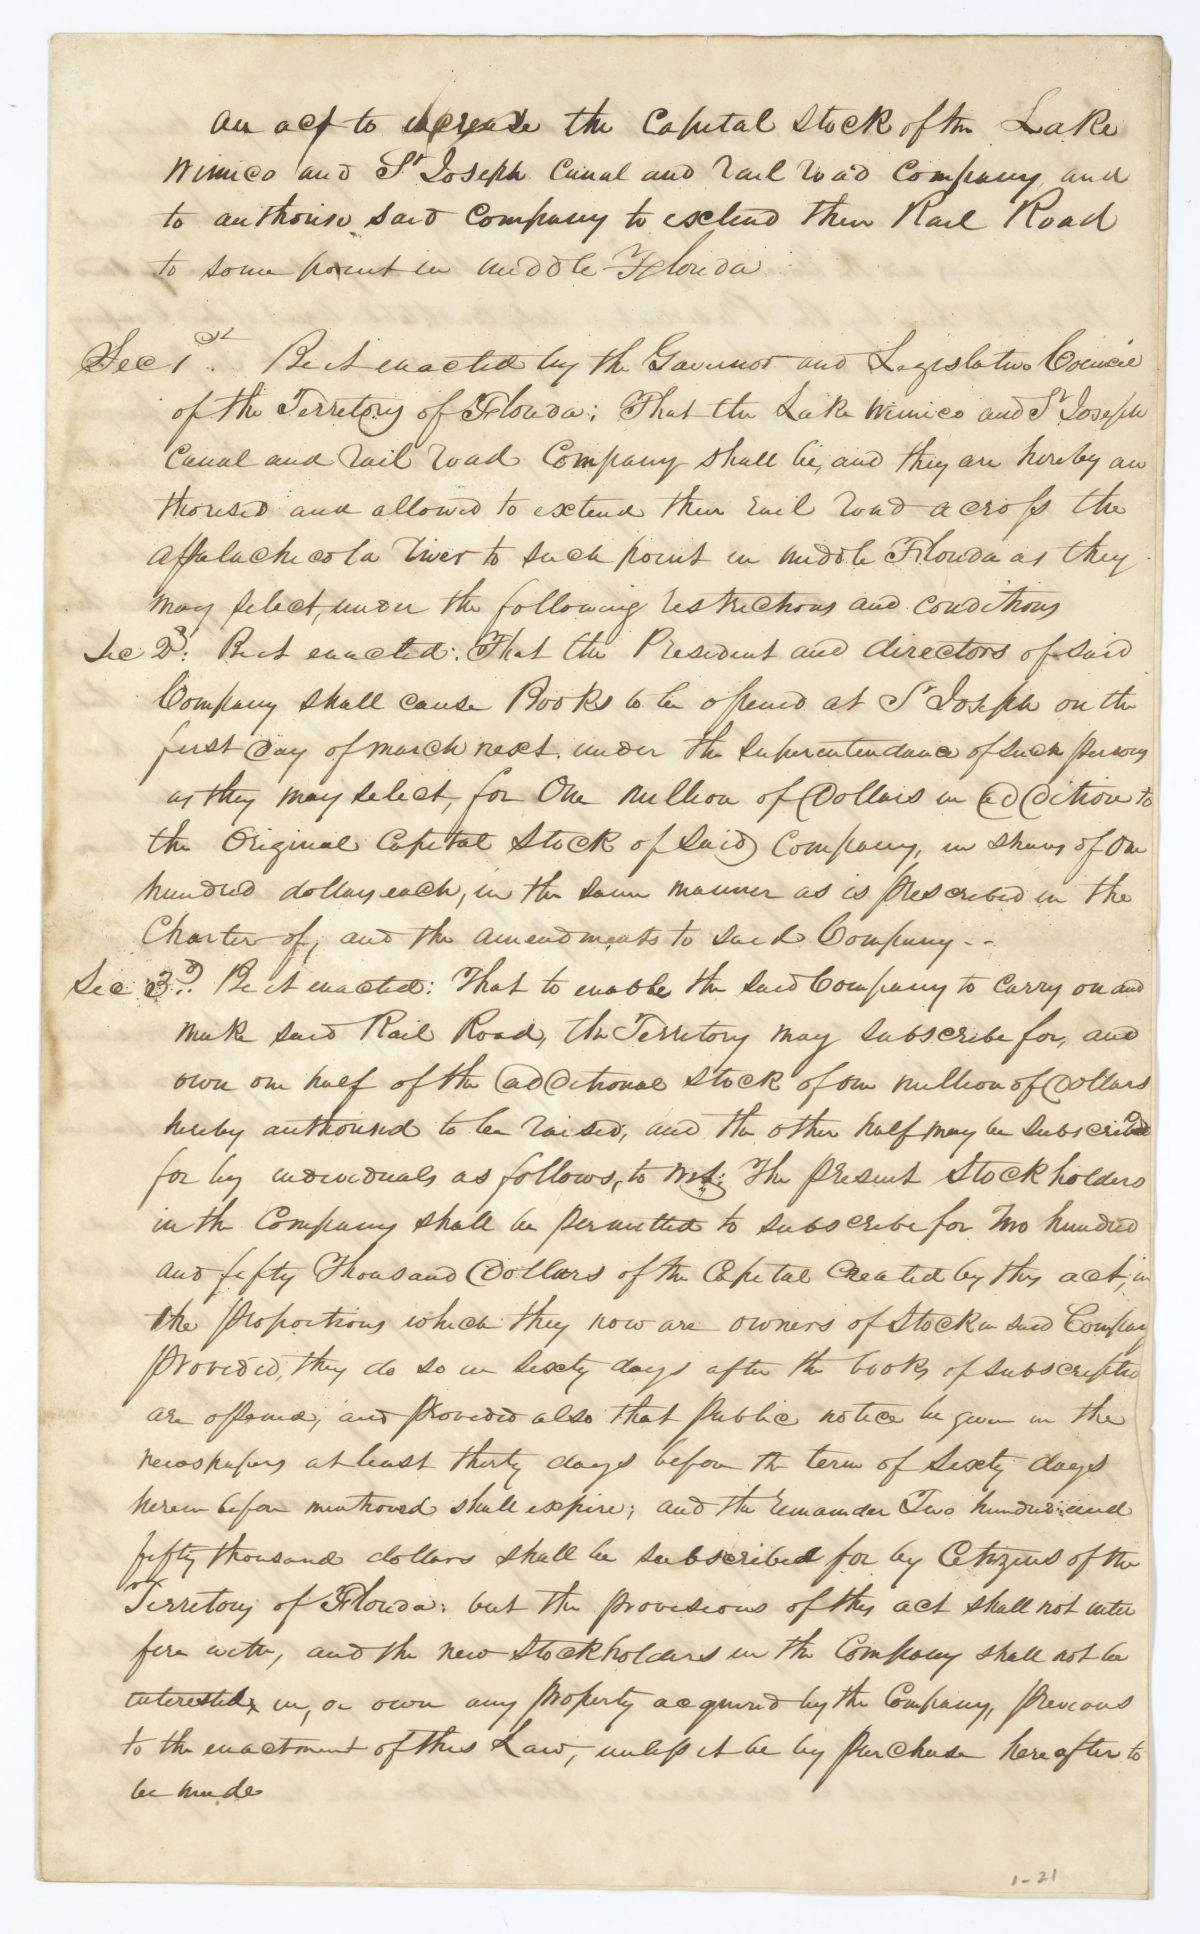 An act to increase the Capital Stock of the Lake
Wimico and St Joseph Canal and rail road Company, and
to authorise said Company to extend their Rail Road
to some point in middle Florida
Sec 1st. Be it enacted by the Governor and Legislative Council
of the Territory of Florida: That the Lake Wimico and St Joseph
Canal and rail road Company shall be, and they are hereby au
thorised and allowed to extend their rail road across the
Appalachicola river to such point in middle Florida as they
may select, under the following restrictions and conditions
Sec 2d: Be it enacted: That the President and directors of said
Company shall cause Books to be opened at St Joseph on the
first day of march next. under the superintendance of such persons
as they may select, for One million of Dollars in addition to
the Original Capital Stock of said Company, in shares of one
hundred dollars each, in the same manner as is prescribed in the
Charter of, and the amendments to said Company --
Sec 3d: Be it enacted: That to enable the said Company to carry on and
make said Rail Road, the Territory may subscribe for, and
own one half of the additional stock of one million of Dollars
hereby authorised to be raised, and the other half may be subscribed
for by individuals as follows, to wit: The present Stockholders
in the Company shall be permitted to subscribe for Two hundred
and fifty Thousand Dollars of the Capital created by this act, in
the proportions which they now are owners of Stock in said Company
provided, they do so in sixty days after the books of subscriptio
are opened, and provided also that public notice be given in the
newspapers at least thirty days before the term of sixty days
herein before mentioned shall expire; and the remainder Two hundred and
fifty thousand dollars shall be subscribed for by Citizens of the
Territory of Florida: but the provisions of this act shall not inter
fere with, and the new Stockholders in the Company shall not be
interested in, or own any property acquired by the Company, previous
to the enactment of this Law, unless it be by purchase hereafter to
be made
1-21